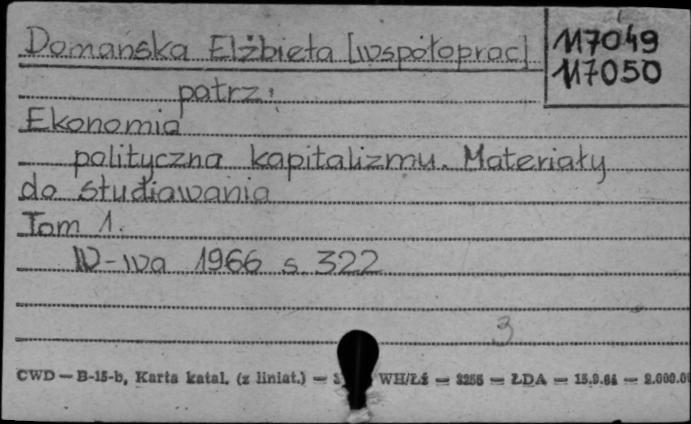 Domańska Elżbieta [współoprac]
117049
117050
patrz:
Ekonomia
polityczna kapitalizmu. Materiały
do studiowania
Tom 1.
W-wa 1966 s. 322
3
CWD — B-15-b, Karta katal. (z liniat.) — WH/Łź — 3255 — ŁDA — 15.9.64 — 2.000.00